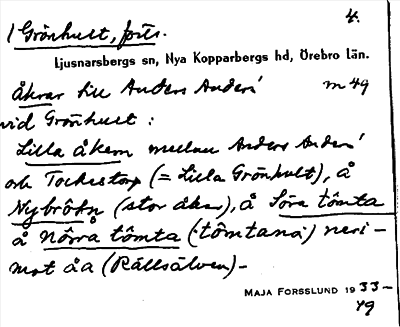 / Grönhult, förts. 4.
Ljusnarsbergs sn, Nya Kopparbergs hd, Örebro län.
Åkrar till Anders Anders' m 49
vid Grönhult :
Lilla åkern mellan Anders Anders'
och Tockestorp (= Lilla Grönhult), å
Nybrôtn (stor åker), å Söra tômta
å Nôrra tômta ('tômtana') neri-
mot åa (Rällsälven) -
MAJA FORSSLUND 19 33-
49